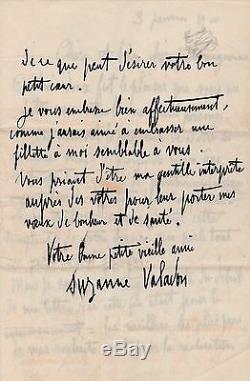 de ce que peut désirer votre bon
petit cœur.
je vous embrasse bien affectueusement,
comme j'aurais aimé à embrasser une
fillette à moi semblable à vous.
Vous priant d'être ma gentille interprète
auprès des vôtres pour leur porter mes
vœux de bonheur et de santé.
Votre bonne petite vieille amie
Suzanne Valadon